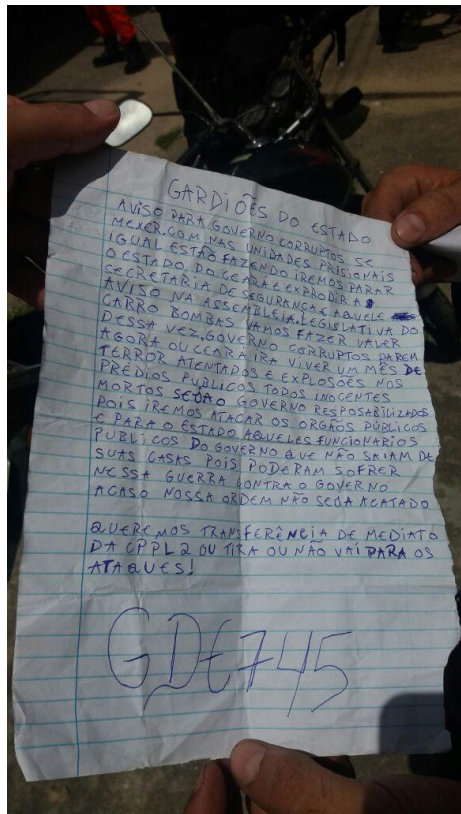 GARDIÕES DO ESTADO
AVISO PARA GOVERNO CORRUPTOS SE
MEXER.COM NAS UNIDADES PRISIONAIS
IGUAL ESTÃO FAZENDO IREMOS PARAR
O ESTADO DO CEARÁ E EXPRODIR A
SECRETARIA DE SEGURANÇA E AQUELE
AVISO NA ASSEMBLEIA.LEGISLATIVA DO
CARRO BOMBAS VAMOS FAZER VALER
DESSA VEZ.GOVERNO CORRUPTOS PAREM
AGORA OU CEARÁ IRA VIVER UM MÊS DE
TERROR ATENTADOS E EXPLOSÕES NOS
PRÉDIOS PUBLICOS TODOS INOCENTES
MORTOS SEDÃO GOVERNO RESPOSABILIZADOS
POIS IREMOS ATACAR OS ORGÃOS PÚBLICOS
E PARA O ESTADO AQUELES FUNCIONARIOS
PUBLICOS DO GOVERNO QUE NÃO SAIAM DE
SUAS CASAS POIS PODERAM SOFRER
NESSA GUERRA CONTRA O GOVERNO
ACASO NOSSA ORDEM NÃO SEDA ACATADO
QUEREMOS TRANSFERÊNCIA DE MEDIATO
DA CPPL2 OU TIRA OU NÃO VAI PARA OS
ATAQUES!
GDE745